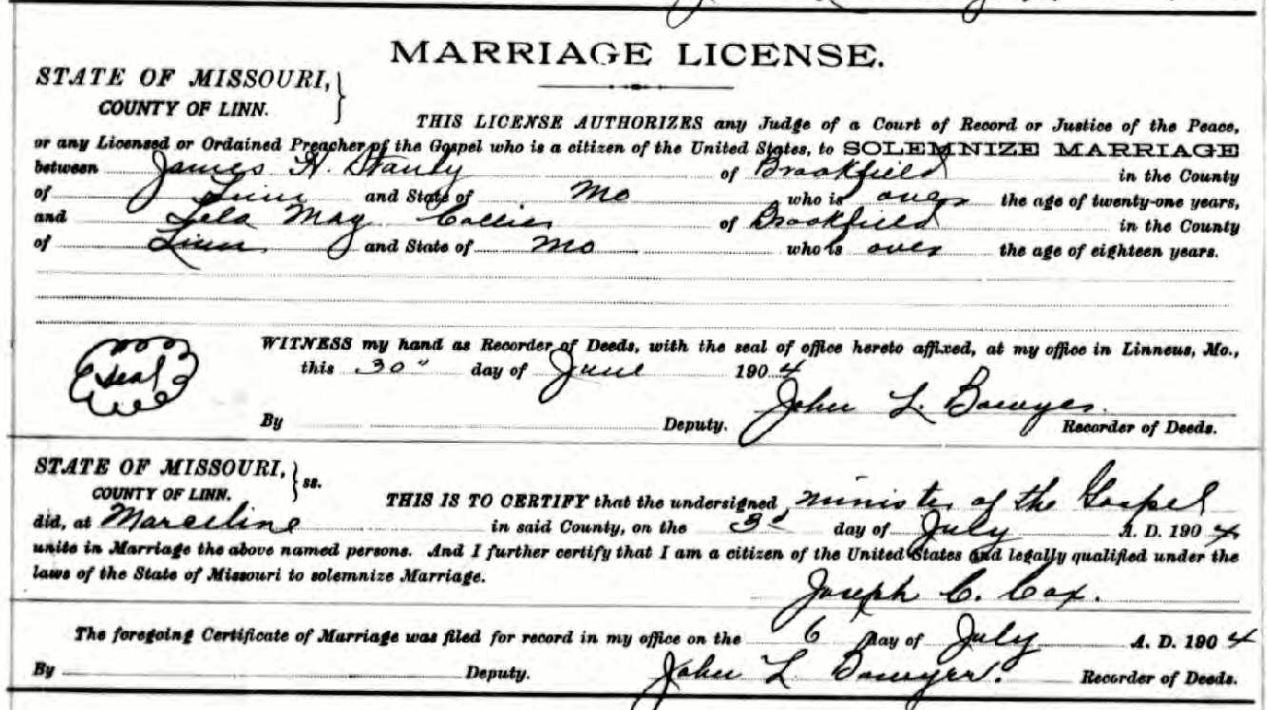 MARRIAGE LICENSE.
STATE OF MISSOURI,
COUNTY OF LINN.
THIS LICENSE AUTHORIZES any Judge of a Court of Record or Justice of the Peace,
or any Licensed or Ordained Preacher of the Gospel who is a citizen of the United States, to SOLEMNIZE MARRIAGE
between James H. Stanly of Brookfield in the County
of Linn and State of Mo who is over the age of twenty-one years,
and Lela May Collier of Brookfield in the County
of Linn and State of Mo who is over the age of eighteen years.
WITNESS my hand as Recorder of Deeds, with the seal of office hereto affixed, at my office in Linneus, Mo.,
Seal
this 30" day of June 1904
John L. Bowyer.
By Deputy. Recorder of Deeds.
STATE OF MISSOURI,
COUNTY OF LINN. ss.
THIS IS TO CERTIFY that the undersigned, minister of the Gospel
did, at Marceline in said County, on the 3" day of July A. D. 1904
unite in Marriage the above named persons. And I further certify that I am a citizen of the United States and legally qualified under the
laws of the State of Missouri to solemnize Marriage.
Joseph C. Cox.
The foregoing Certificate of Marriage was filed for record in my office on the 6 day of July A. D. 1904
By Deputy. John L Bowyer. Recorder of Deeds.